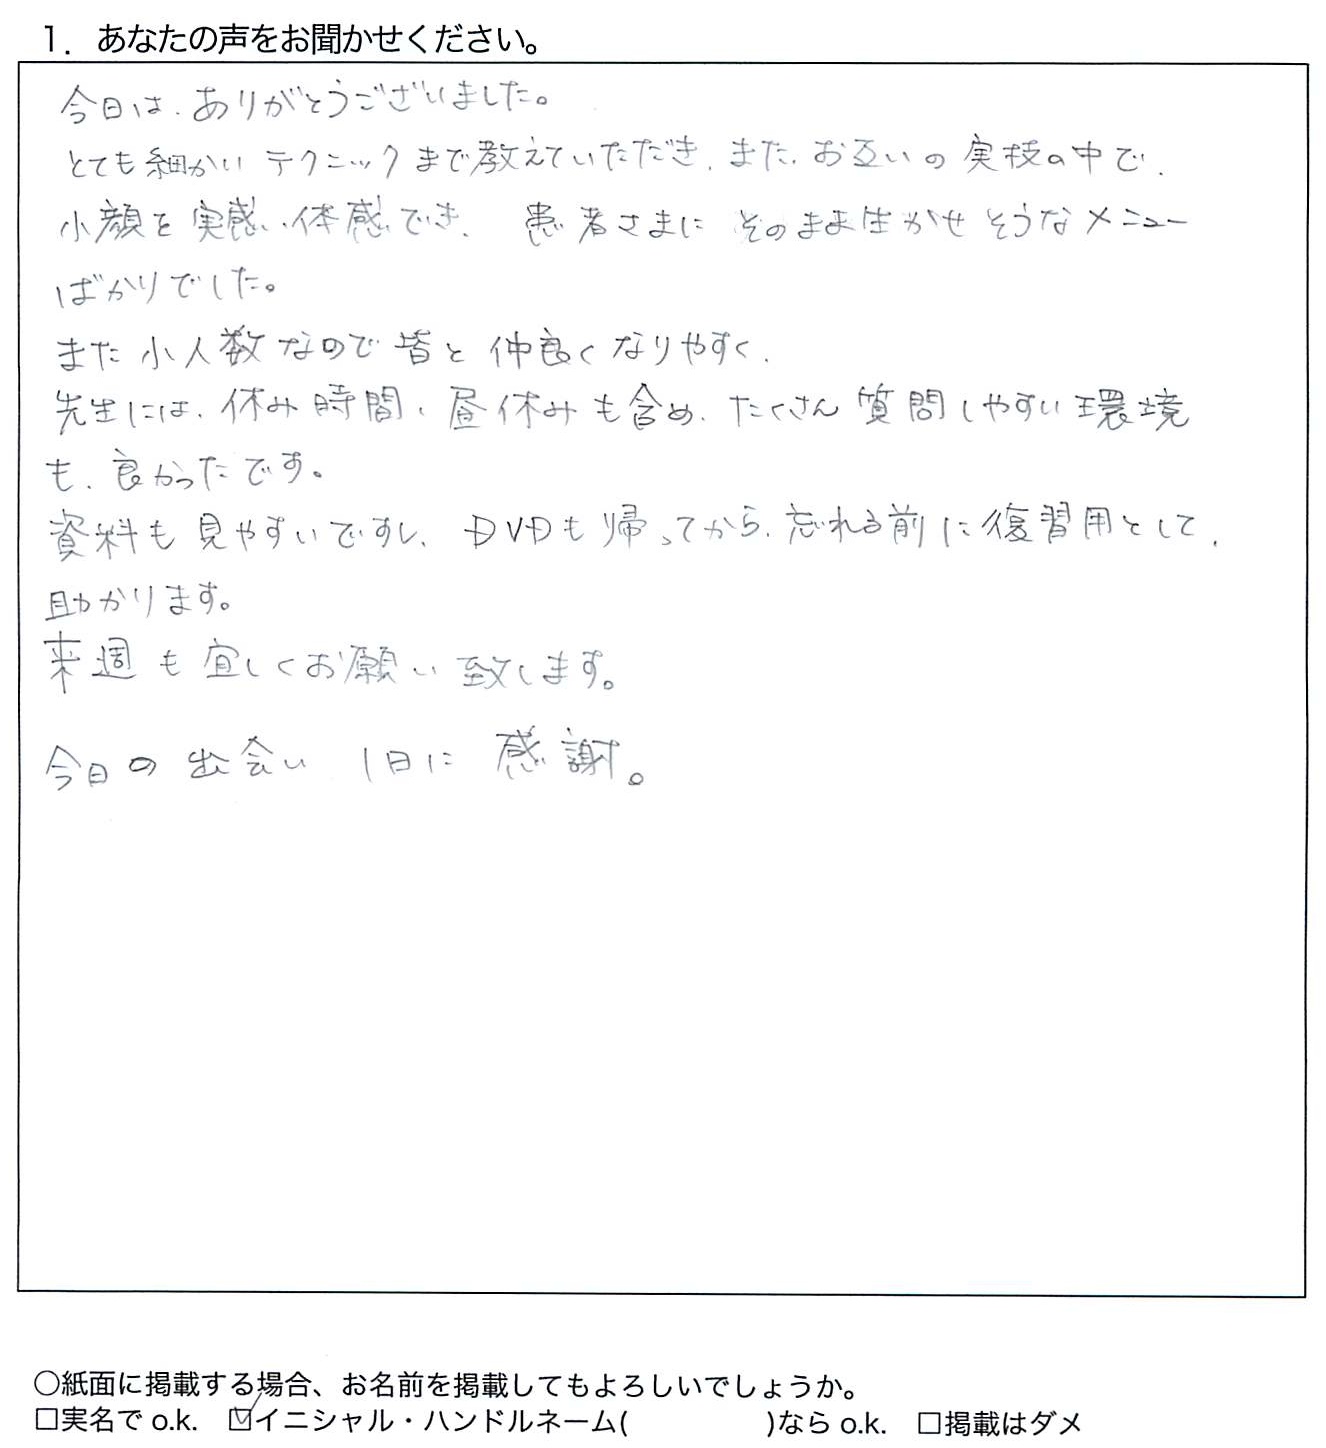 1．あなたの声をお聞かせください。
今日は、ありがとうございました。
とても細かいテクニックまで教えていただき、また、お互いの実技の中で、
小顔を実感、体感でき、患者さまにそのまま生かせそうなメニュー
ばかりでした。
また小人数なので皆と仲良くなりやすく、
先生には、休み時間、昼休みも含め、たくさん質問しやすい環境
も、良かったです。
資料も見やすいですし、DVDも帰ってから、忘れる前に復習用として、
助かります。
来週も宜しくお願い致します。
今日の出会い 1日に感謝。
○紙面に掲載する場合、お名前を掲載してもよろしいでしょうか。
□実名でo.k. ☑イニシャル・ハンドルネーム( )ならo.k. □掲載はダメ